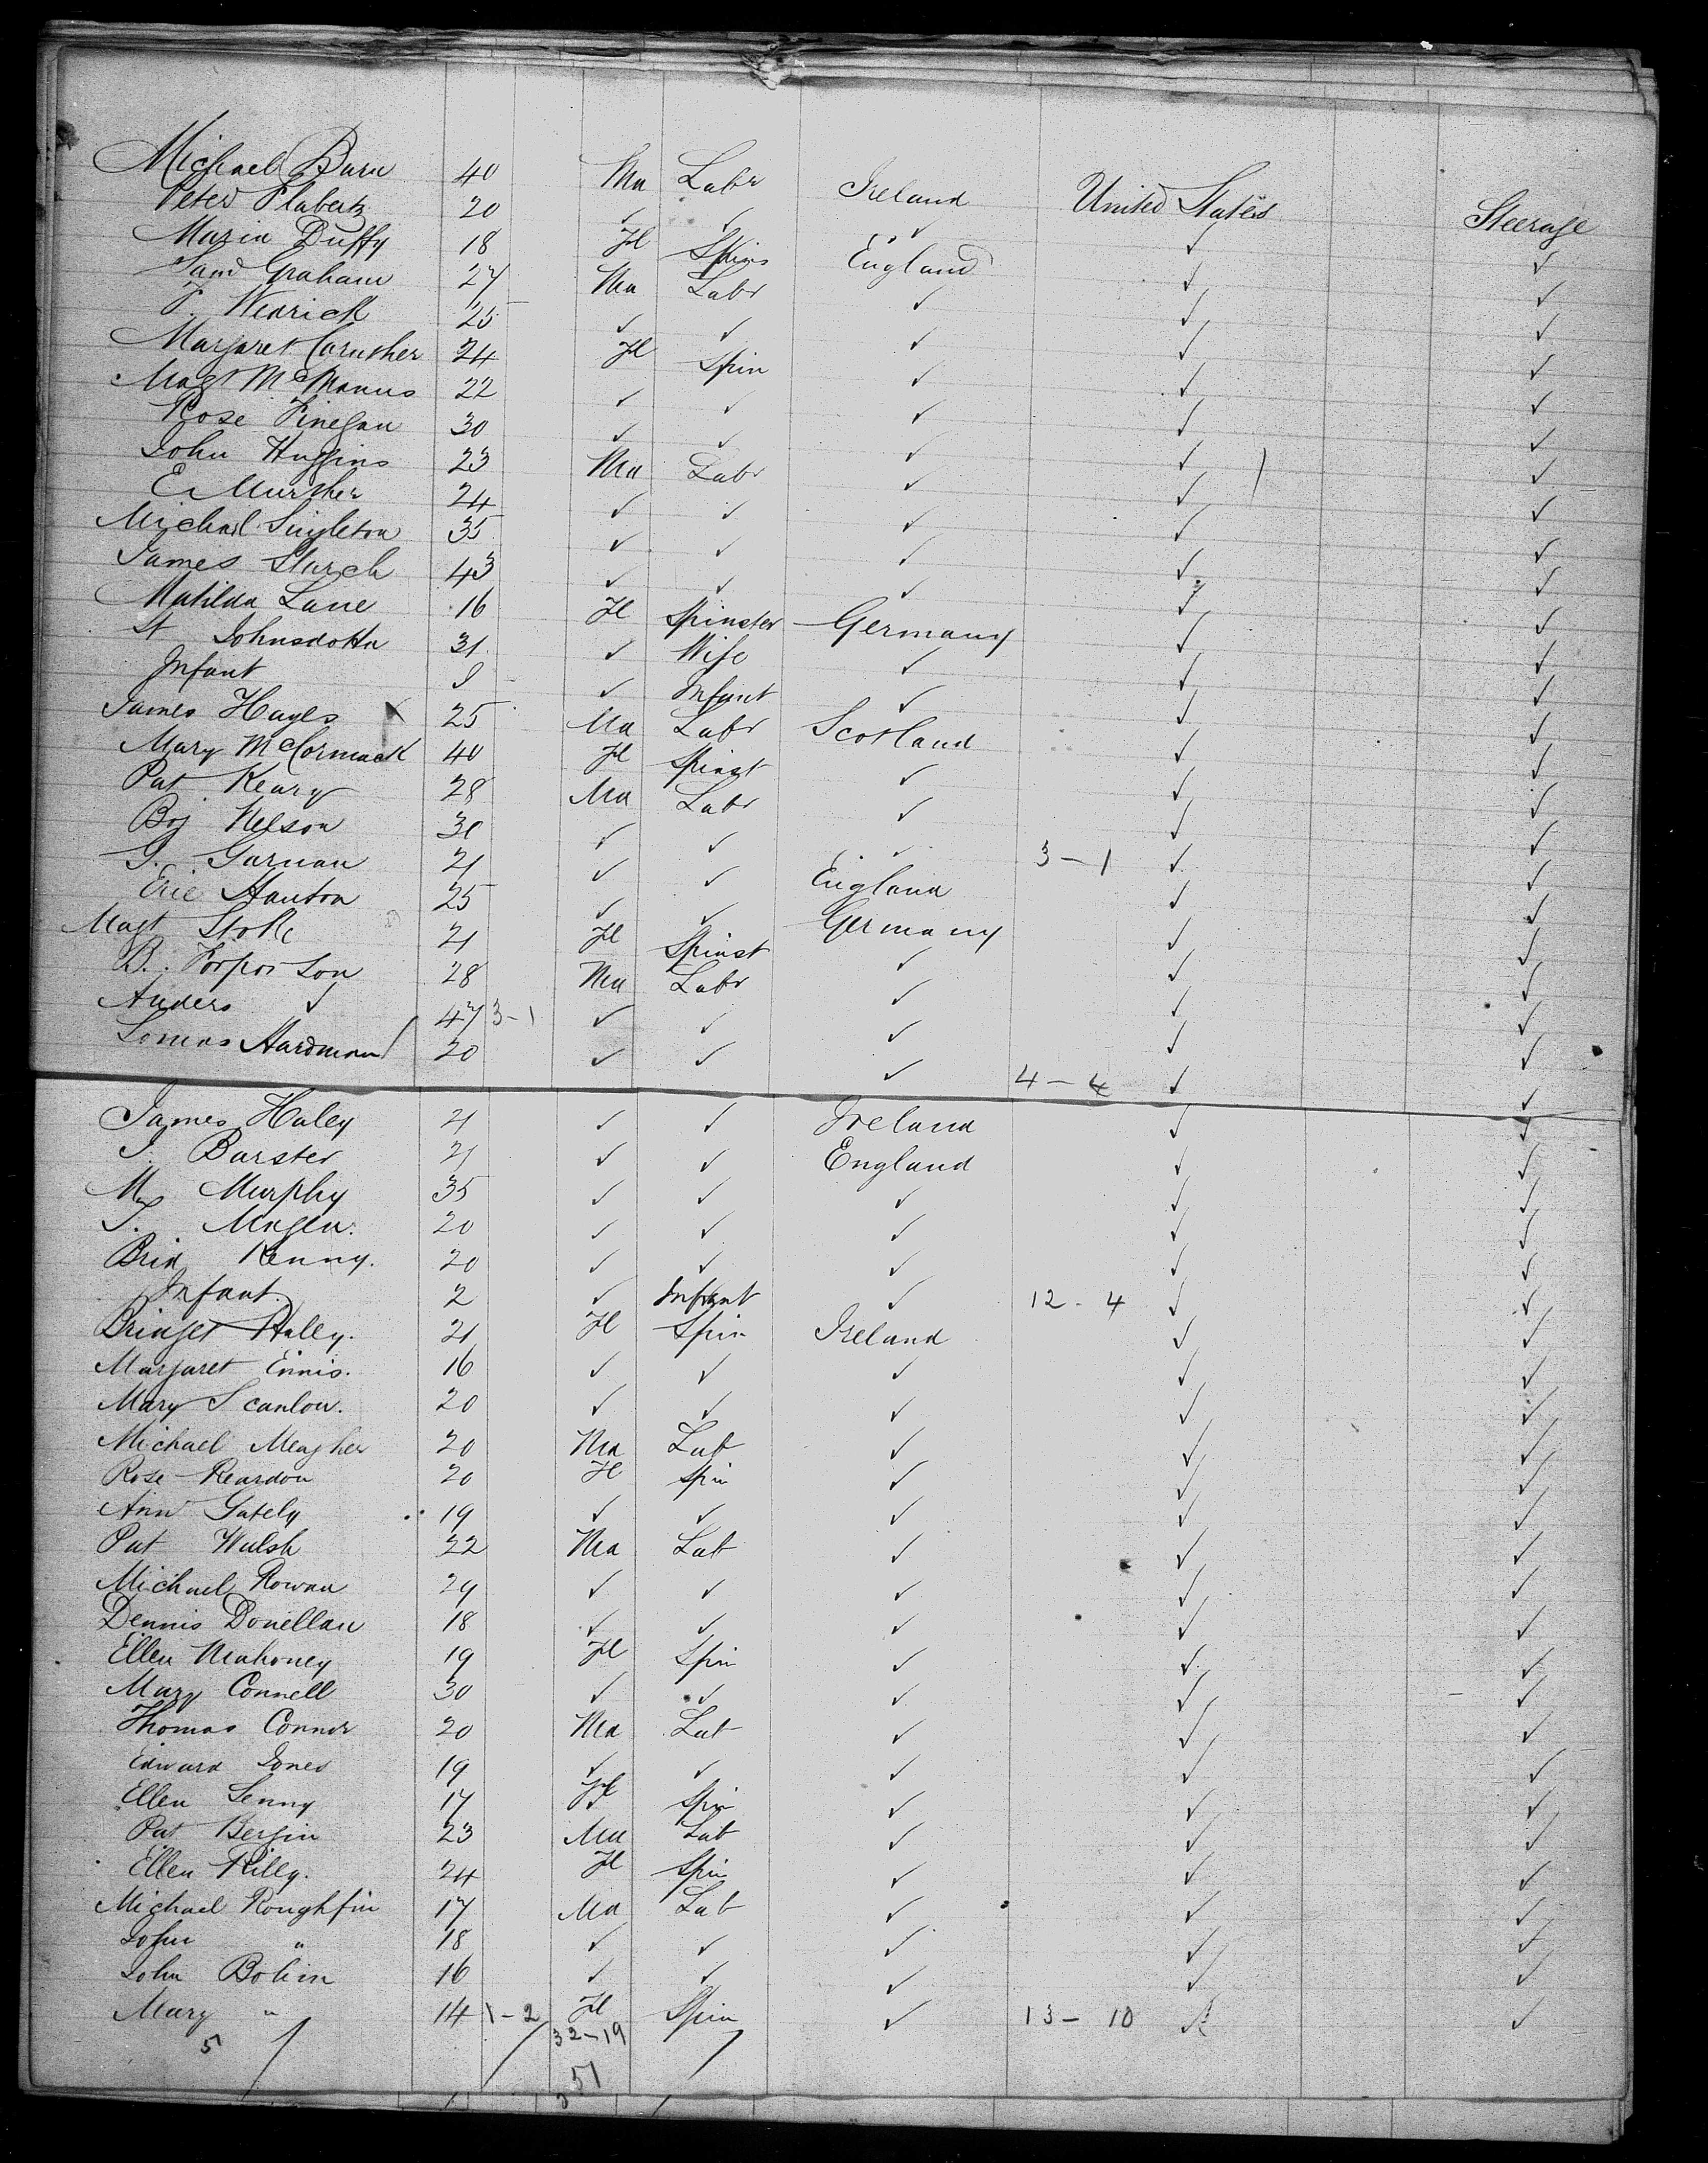 Michael Burn 40 Ma Labr Ireland United States Steerage
Peter Flabertz 20 ✓ ✓ ✓ ✓ ✓
Maria Duffy 18 Fl Spins England ✓ ✓
Saml Graham 27 Ma Labr ✓ ✓ ✓
P. Wenrick 25 ✓ ✓ ✓ ✓ ✓
Margaret Caruther 24 Fl Spin ✓ ✓ ✓
Magt McManus 22 ✓ ✓ ✓ ✓ ✓
Rose Finegan 30 ✓ ✓ ✓ ✓ ✓
John Huggins 23 Ma Labr ✓ ✓ ✓
E. Murther 24 ✓ ✓ ✓ ✓ ✓
Michael Singleton 35 ✓ ✓ ✓ ✓ ✓
James Sturch 43 ✓ ✓ ✓ ✓ ✓
Matilda Lane 16 Fl Spinster Germany ✓ ✓
St Johnsdotta 31 ✓ Wife ✓ ✓ ✓
Infant ✓ Infant ✓ ✓ ✓
James Hayes 25 Ma Labr Scotland ✓ ✓
Mary McCormack 40 Fl Spinst ✓ ✓ ✓
Pat Keary 28 Ma Labr ✓ ✓ ✓
Boj Nelson 30 ✓ ✓ ✓ 3-1 ✓ ✓
G. Garnan 21 ✓ ✓ England ✓ ✓
Eric Hanton 25 ✓ ✓ Germany ✓ ✓
Magt Stolle 21 Fl Spinst ✓ ✓ ✓
B. Forporson 28 Ma Labr ✓ ✓ ✓
Anders ✓ 47 3-1 ✓ ✓ ✓ ✓ ✓
Lomas Hardman 20 ✓ ✓ ✓ 4-4 ✓ ✓
James Haley 21 ✓ ✓ Ireland ✓ ✓
J. Barster 21 ✓ ✓ England ✓ ✓
Murphy 35 ✓ ✓ ✓ ✓ ✓
T. Magen. 20 ✓ ✓ ✓ ✓ ✓
Brid Kenny. 20 ✓ ✓ ✓ ✓ ✓
Infant. 2 ✓ Infant ✓ 12-4 ✓ ✓
Bridget Haley. 21 Fl Spin Ireland ✓ ✓
Margaret Ennis. 16 ✓ ✓ ✓ ✓ ✓
Mary Scanlon. 20 ✓ ✓ ✓ ✓ ✓
Michael Meagher 20 Ma Lab ✓ ✓ ✓
Rose Reardon 20 Fl Spin ✓ ✓ ✓
Ann Gately 19 ✓ ✓ ✓ ✓ ✓
Pat Walsh 22 Ma Lab ✓ ✓ ✓
Michael Rowan 29 ✓ ✓ ✓ ✓ ✓
Dennis Donellan 18 ✓ ✓ ✓ ✓ ✓
Ellen Mahoney 19 Fl Spin ✓ ✓ ✓
Mary Connell 30 ✓ ✓ ✓ ✓ ✓
Thomas Connor 20 Ma Lab ✓ ✓ ✓
Edward Jones 19 ✓ ✓ ✓ ✓ ✓
Ellen Lenny 17 Fl Spin ✓ ✓ ✓
Pat Bergin 23 Ma Lab ✓ ✓ ✓
Ellen Killy. 24 Fl Spin ✓ ✓ ✓
Michael Roughfin 17 Ma Lab ✓ ✓ ✓
John " 18 ✓ ✓ ✓ ✓ ✓
John Bohin 16 ✓ ✓ ✓ ✓ ✓
Mary " 14 1-2 Fl Spin ✓ 13-10 ✓ ✓
5 32-19
51